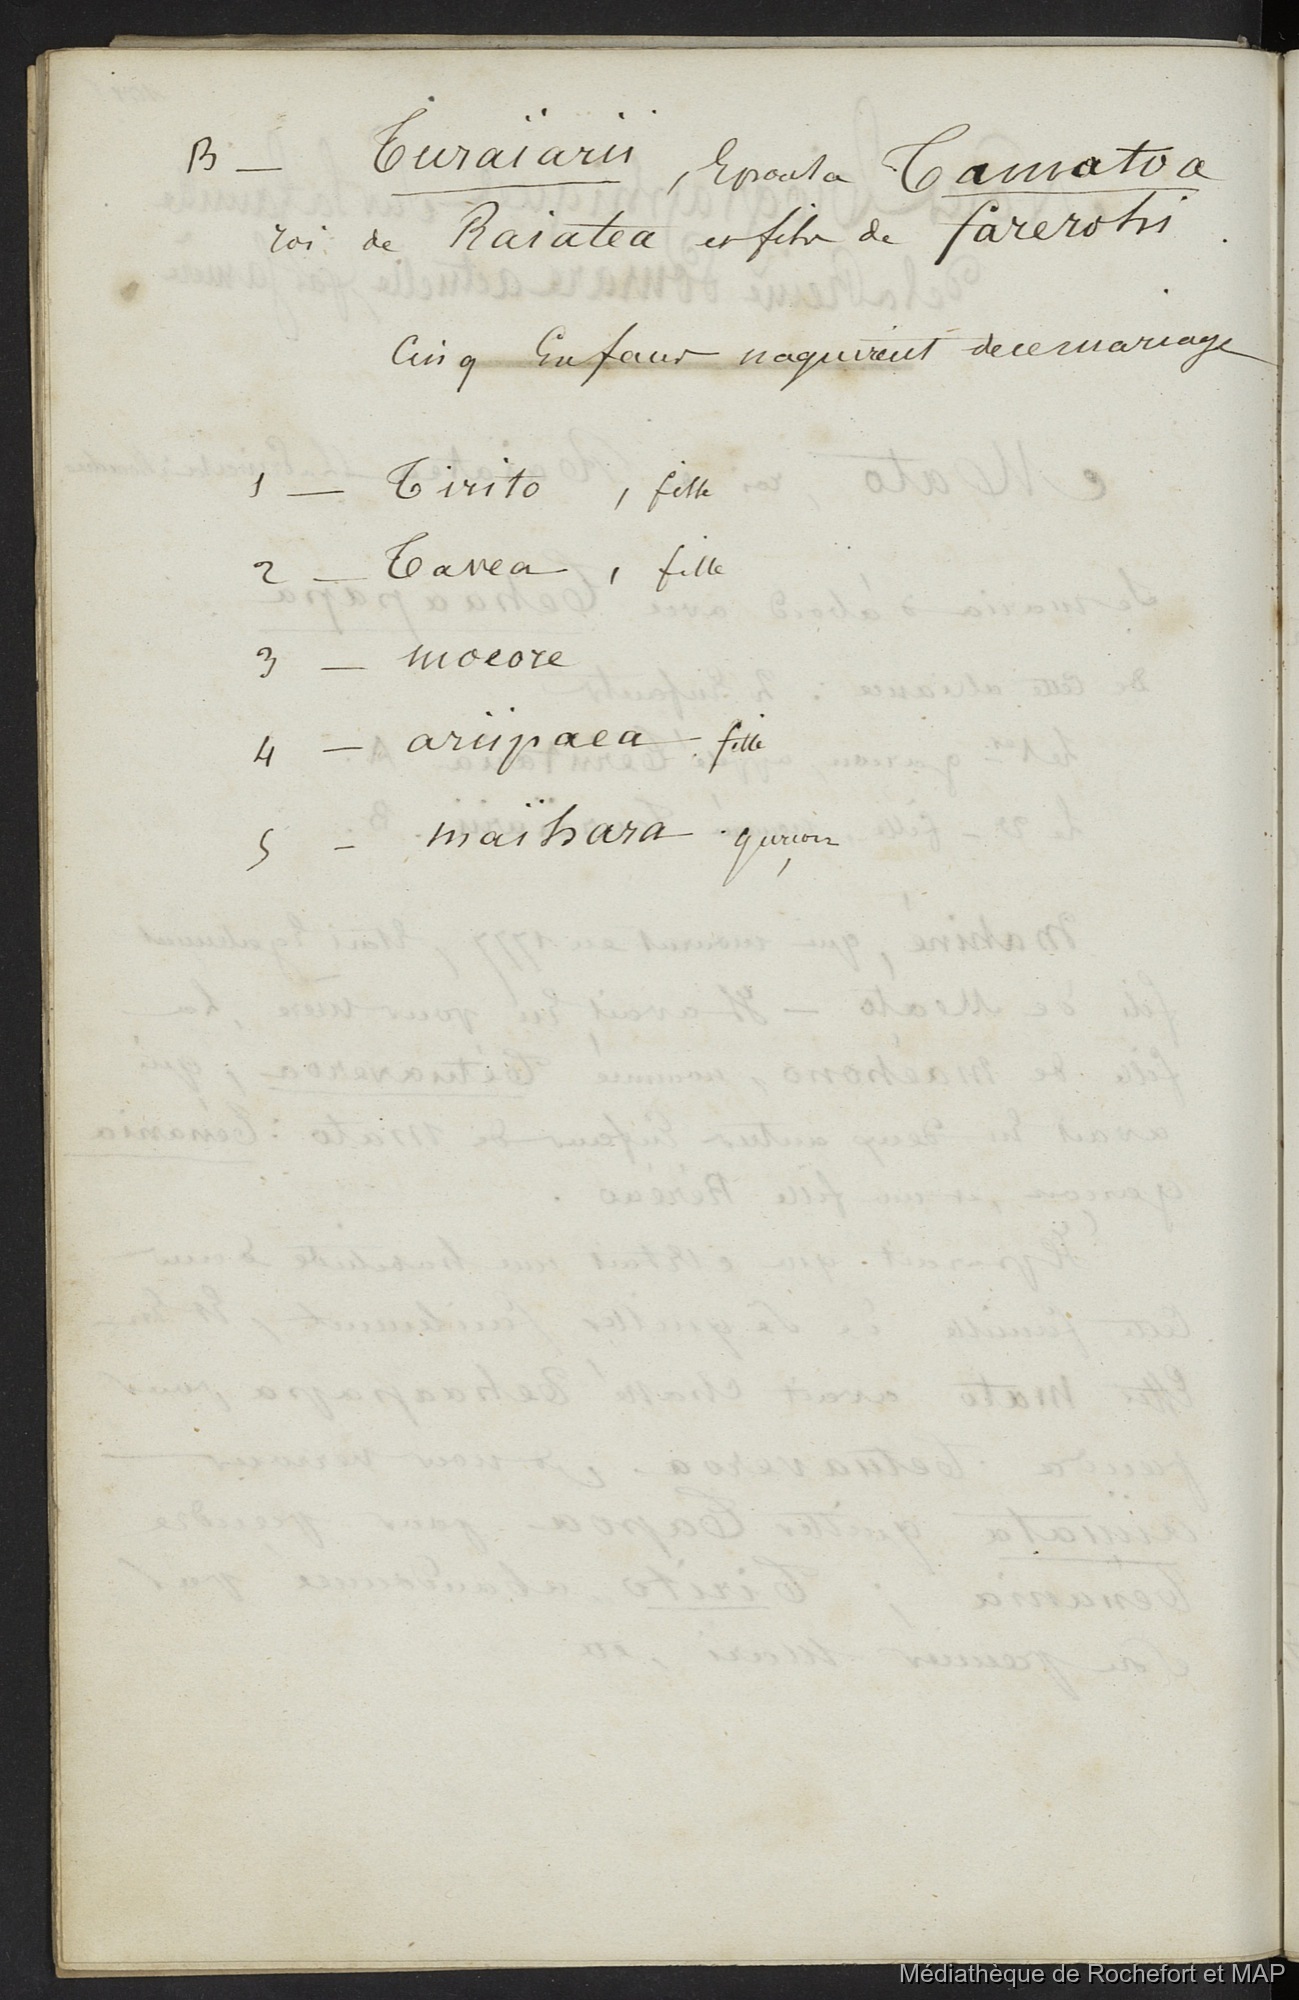 B — Turaïarii, Epousa Tamatoa
roi de Raiatea et fils de farerohi.
Cinq Enfans naquirent de ce mariage
1 — Tirito, fille
2 — Tavea, fille
3 — moeore
4 — ariipaea fille
5 — maïhara garçon
Médiathèque de Rochefort et MAP